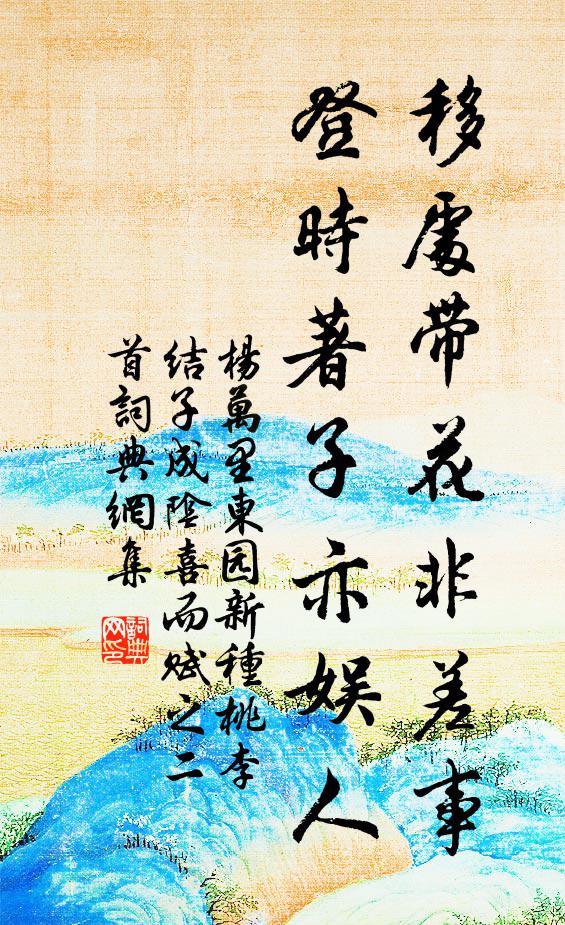 移處帶花非差事
登時著子亦娛人
楊萬里東园新種桃李
结子成陰喜而赋之二
首詞典網集
詞典
网印